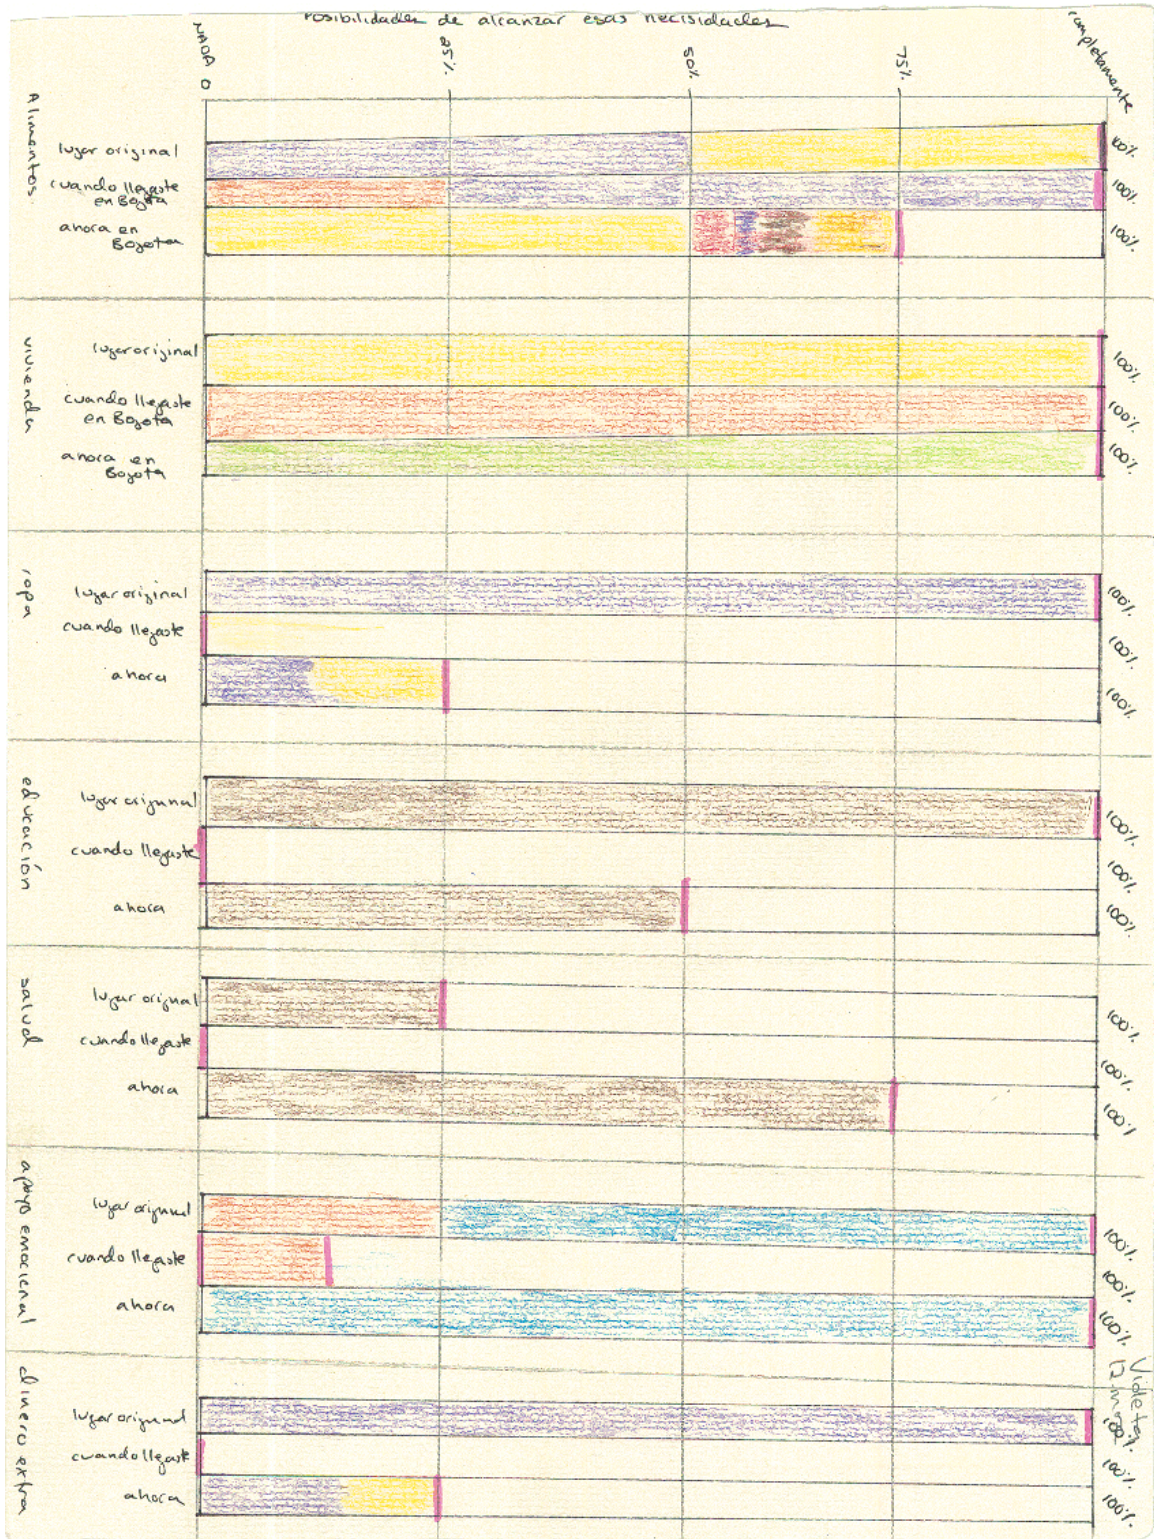 Posibilidades de alcanzar esas necisidades
NADA 0
25%
50%
75%
completamente
Alimentos
lugar original
100%
cuando llegaste
en Bogota
100%
ahora en
Bogota
100%
vivienda
lugar original
100%
cuando llegaste
en Bogota
100%
ahora en
Bogota
100%
ropa
lugar original
100%
cuando llegaste
100%
ahora
100%
educación
lugar original
100%
cuando llegaste
100%
ahora
100%
salud
lugar original
100%
cuando llegaste
100%
ahora
100%
apoyo emocional
lugar original
100%
cuando llegaste
100%
ahora
100%
dinero extra
lugar original
100%
cuando llegaste
100%
ahora
100%